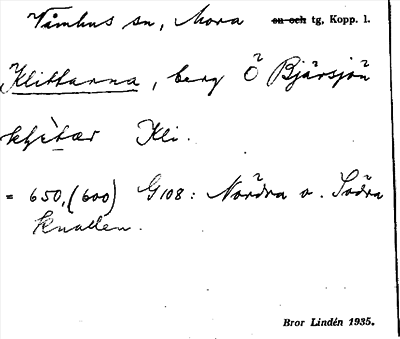 Våmhus sn, Mora ~~sn och~~ tg, Kopp. l.
Klittarna, berg Ö Bjärsjön
Kli.
= 650, (600) G108: Nordra o. Södra
Knallen.
Bror Lindén 1935.